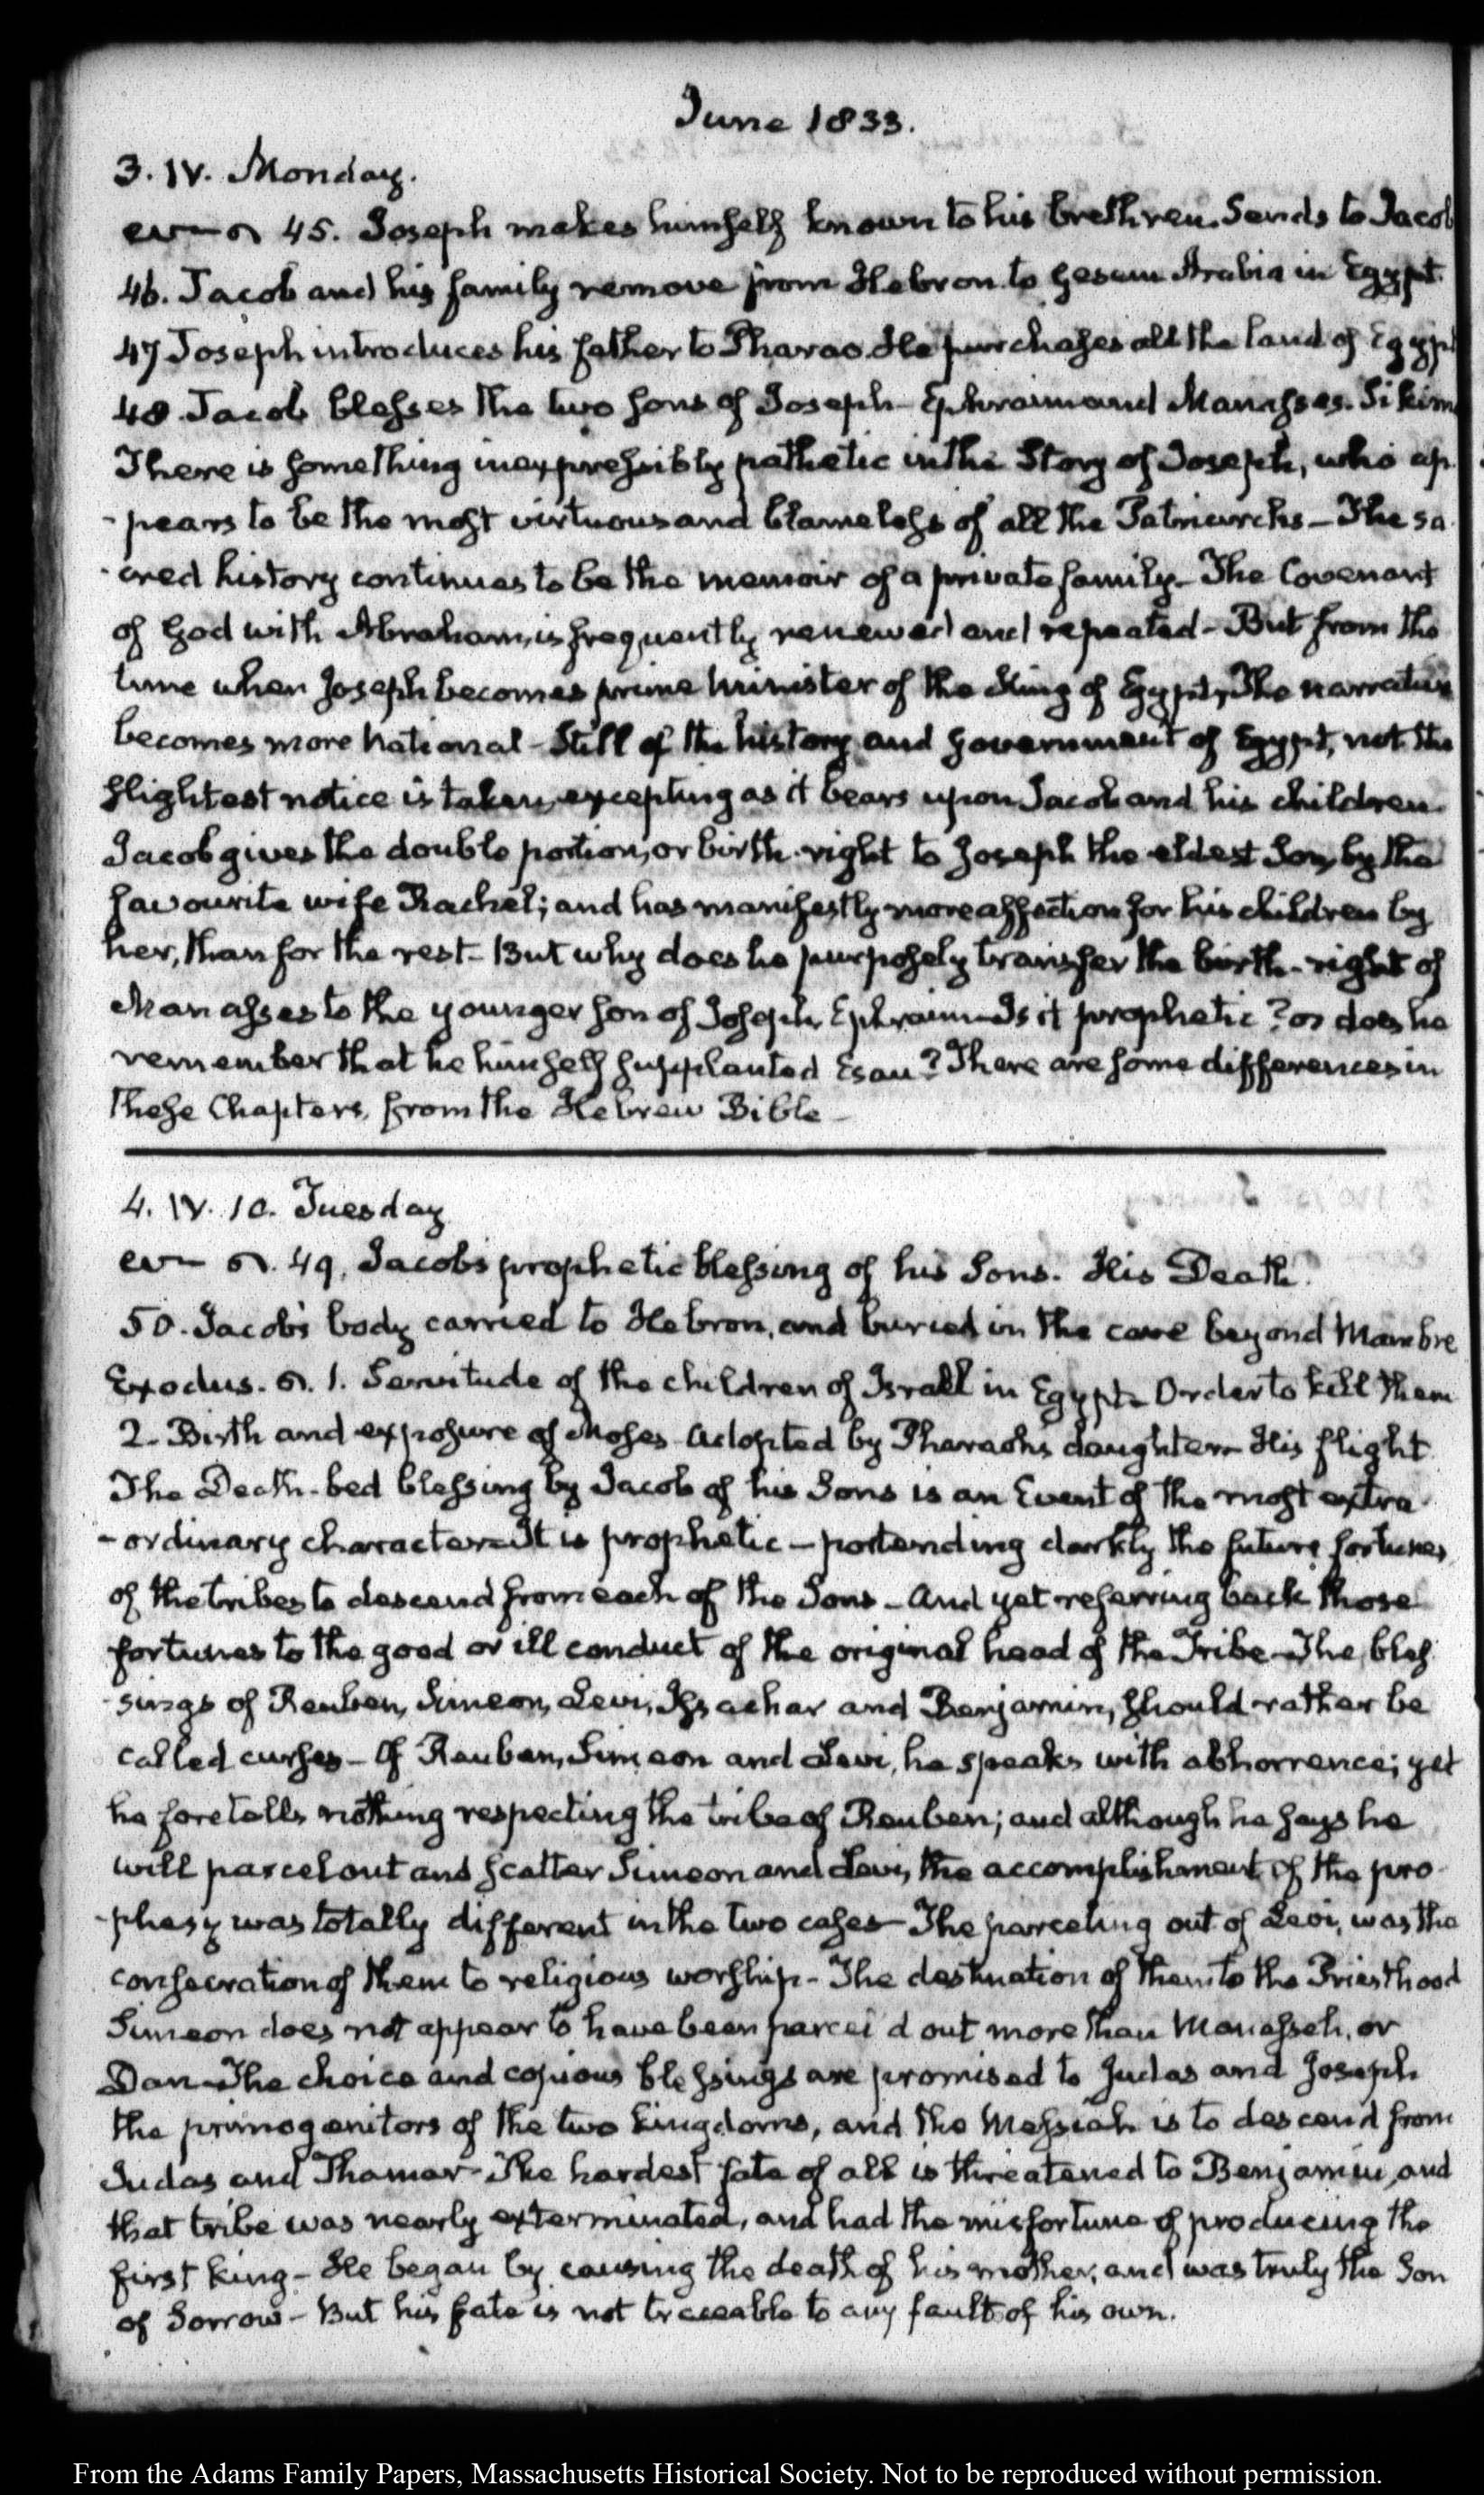 June 1833.
3. IV. Monday.
45. Joseph makes himself known to his brethren. Sends to Jacob
46. Jacob and his family remove from Hebron to Gesem Arabia in Egypt.
47 Joseph introduces his father to Pharao. He purchases all the land of Egypt
48. Jacob blesses the two sons of Joseph - Ephraim and Manasses. Sikim
There is something inexpressibly pathetic in the Story of Joseph, who ap
-pears to be the most virtuous and blameless of all the Patriarchs - The sa
-cred history continues to be the memoir of a private family - The Covenant
of God with Abraham, is frequently renewed and repeated - But from the
time when Joseph becomes prime minister of the King of Egypt, The narrative
becomes more national - Still of the history and Government of Egypt, not the
slightest notice is taken, excepting as it bears upon Jacob and his children.
Jacob gives the double portion, or birth-right to Joseph the eldest Son, by the
favourite wife Rachel; and has manifestly more affection for his children by
her, than for the rest - But why does he purposely transfer the birth-right of
Manasses to the younger son of Joseph, Ephraim - Is it prophetic? or does he
remember that he himself supplanted Esau? There are some differences in
these Chapters, from the Hebrew Bible -
4. IV. 10. Tuesday
49. Jacob's prophetic blessing of his Sons. His Death.
50. Jacob's body carried to Hebron, and buried in the cave beyond Mambre
Exodus. 1. Servitude of the children of Israel in Egypt - Order to kill them
2. Birth and exposure of Moses - Adopted by Pharaoh's daughter - His flight
The Death-bed blessing by Jacob of his Sons is an Event of the most extra
-ordinary character - It is prophetic - portending darkly the future fortunes
of the tribes to descend from each of the Sons - And yet referring back those
fortunes to the good or ill conduct of the original head of the Tribe - The bles
-sings of Reuben, Simeon, Levi, Issachar and Benjamin, should rather be
called curses - Of Reuben, Simeon and Levi, he speaks with abhorrence; yet
he foretells nothing respecting the tribe of Reuben; and although he says he
will parcel out and scatter Simeon and Levi, the accomplishment of the pro
-phesy was totally different in the two cases - The parceling out of Levi, was the
consecration of them to religious worship - The destination of them to the Priesthood
Simeon does not appear to have been parcel'd out more than Manasseh, or
Dan - The choice and copious blessings are promised to Judas and Joseph
the primogenitors of the two kingdoms, and the Messiah is to descend from
Judas and Thamar - The hardest fate of all is threatened to Benjamin, and
that tribe was nearly exterminated, and had the misfortune of producing the
first king - He began by causing the death of his mother, and was truly the Son
of Sorrow - But his fate is not traceable to any fault of his own.
From the Adams Family Papers, Massachusetts Historical Society. Not to be reproduced without permission.